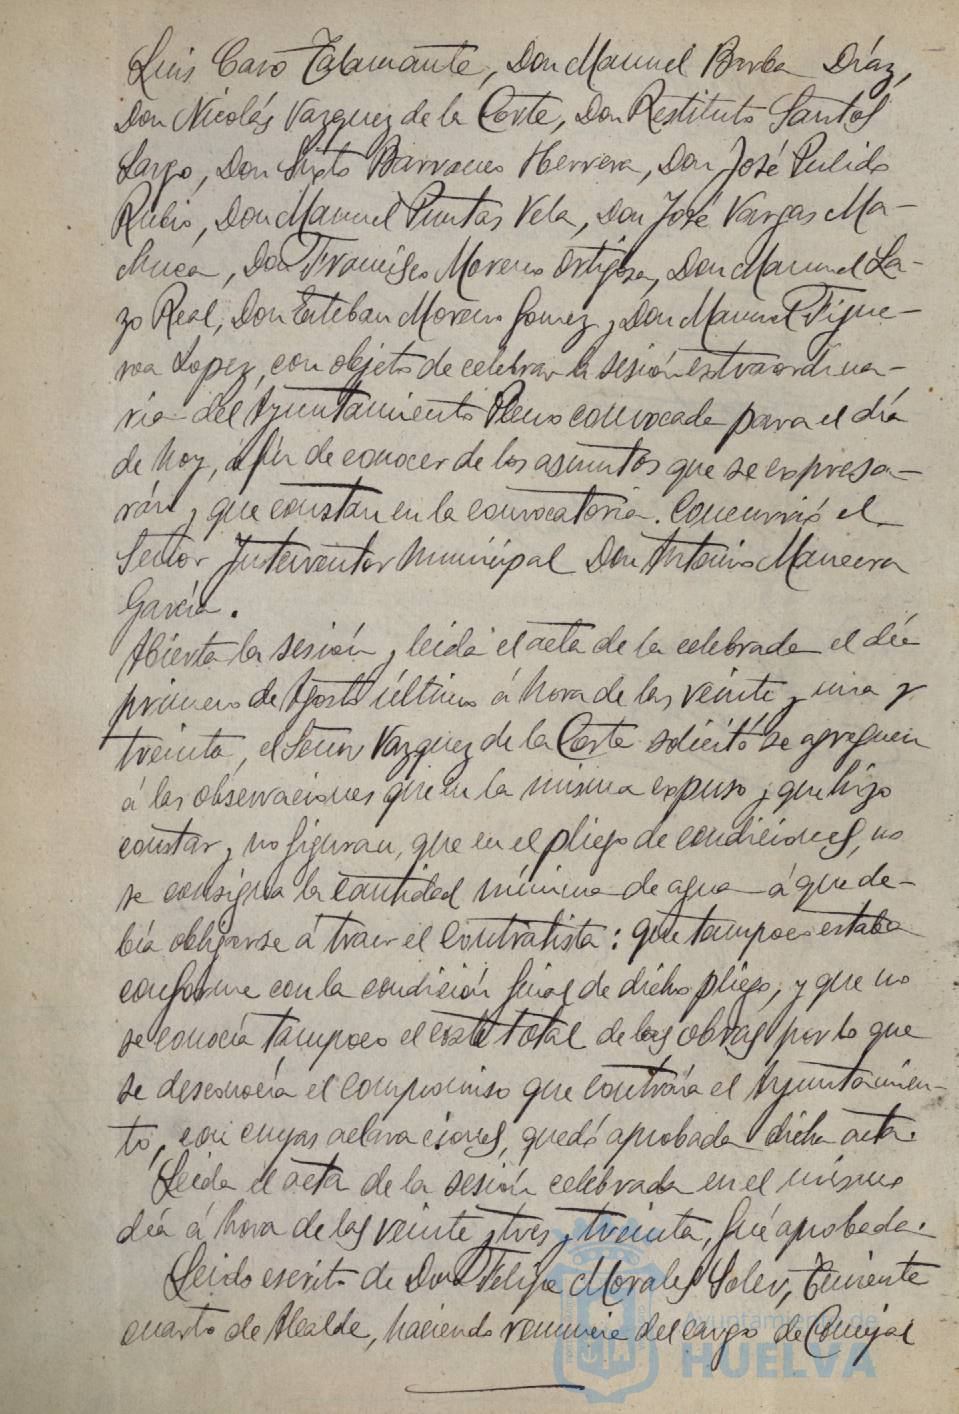 Luis Caro Talamante, Don Manuel Barba Díaz,
Don Nicolás Vazquez de la Corte, Don Restituto Santos
Largo, Don Sixto Barranco Herrera, Don José Pulido
Rubio, Don Manuel Puntas Vela, Don José Vargas Ma-
chuca, Don Francisco Moreno Ortigosa, Don Manuel La-
zo Real, Don Esteban Moreno Gomez y Don Manuel Figue-
roa Lopez, con objeto de celebrar la sesión extraordina-
ria del Ayuntamiento Pleno convocada para el día
de hoy, á fin de conocer de los asuntos que se expresa-
rán y que constan en la convocatoria. Concurrió el
Señor Interventor Municipal Don Antonio Mancera
García.
Abierta la sesión y leida el acta de la celebrada el día
primero de Agosto último á hora de las veinte y una y
treinta, el Señor Vazquez de la Corte solicitó se agreguen
á las observaciones que en la misma expuso y que hizo
constar y no figuran, que en el pliego de condiciones, no
se consigna la cantidad mínima de agua á que de-
bía obligarse á traer el Contratista: que tampoco estaba
conforme con la condición final de dicho pliego, y que no
se conocía tampoco el coste total de las obras por lo que
se desconocía el compromiso que contraía el Ayuntamien-
to, con cuyas aclaraciones, quedó aprobada dicha acta.
Leida el acta de la sesión celebrada en el mismo
día á hora de las veinte y tres y treinta, fué aprobada.
Leido escrito de Don Felipe Morales Soler, Teniente
cuarto de Alcalde, haciendo renuncia del cargo de Concejal
Ayuntamiento de
HUELVA